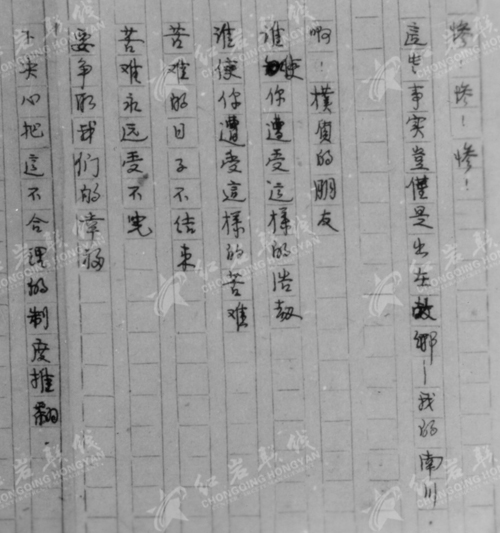 惨！惨！惨！
這些事实豈僅是出在故鄉—我的南川．
啊！樸質的朋友
誰使你遭受这樣的浩劫
谁使你遭受這樣的苦难
苦难的日子不结束
苦难永远受不完
要争取我们的幸福
下决心把這不合理的制度推翻．
红岩联线
CHONGQING HONGYAN